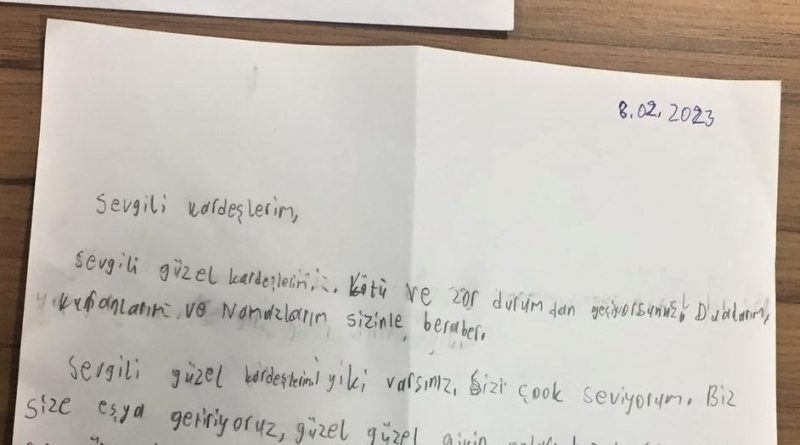 8.02.2023
Sevgili kardeşlerim,
Sevgili güzel kardeşlerim. Kötü ve zor durumdan geçiyorsunuz. Dualarım,
Kur'anlarım ve Namazlarım sizinle beraber.
Sevgili güzel kardeşlerim iyiki varsınız. Sizi çook seviyorum. Biz
size eşya getiriyoruz, güzel güzel giyin